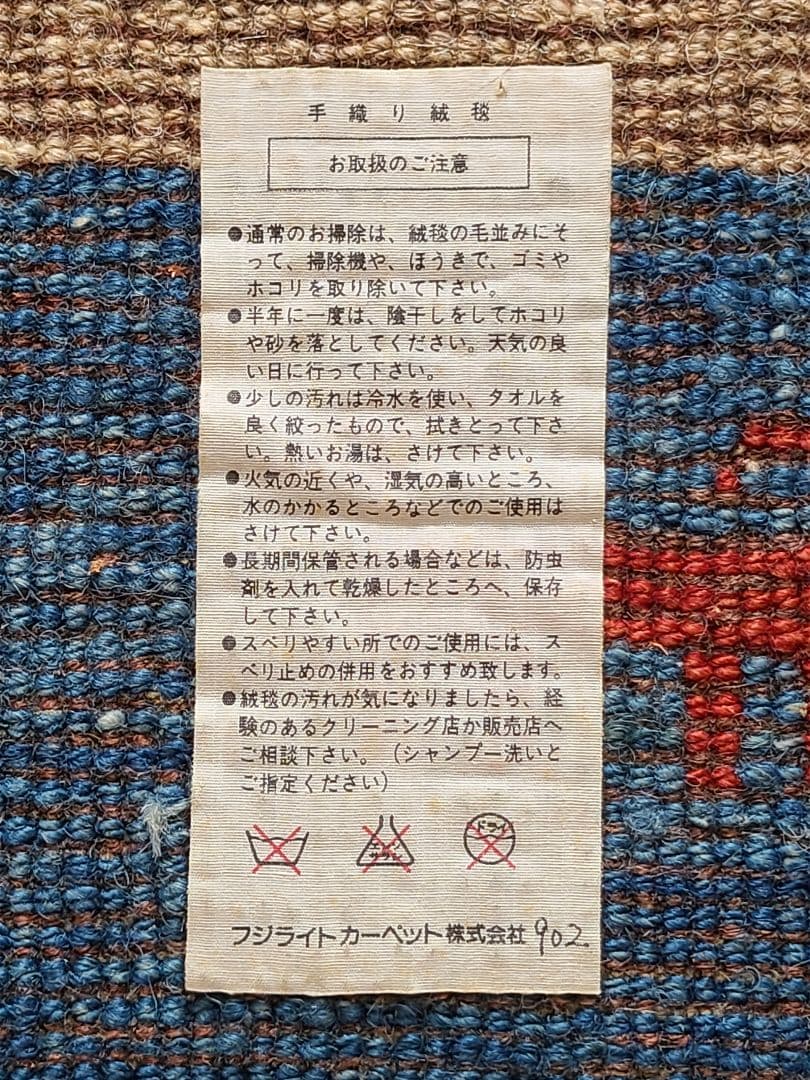 手織り絨毯
お取扱のご注意
●通常のお掃除は、絨毯の毛並みにそ
って、掃除機や、ほうきで、ゴミや
ホコリを取り除いて下さい。
●半年に一度は、陰干しをしてホコリ
や砂を落としてください。天気の良
い日に行って下さい。
●少しの汚れは冷水を使い、タオルを
良く絞ったもので、拭きとって下さ
い。熱いお湯は、さけて下さい。
●火気の近くや、湿気の高いところ、
水のかかるところなどでのご使用は
さけて下さい。
●長期間保管される場合などは、防虫
剤を入れて乾燥したところへ、保存
して下さい。
●スベリやすい所でのご使用には、ス
ベリ止めの併用をおすすめ致します。
●絨毯の汚れが気になりましたら、経
験のあるクリーニング店か販売店へ
ご相談下さい。（シャンプー洗いと
ご指定ください）
エンソサラシ ドライ
フジライトカーペット株式会社 902